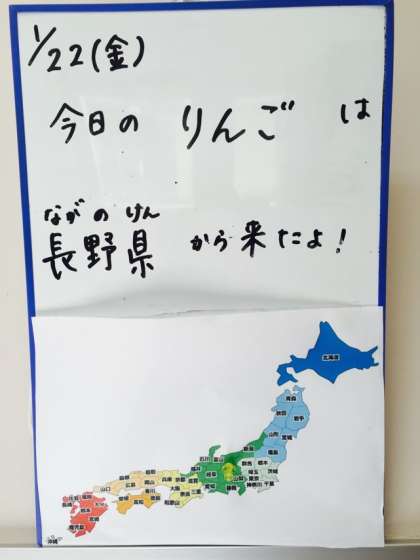 1/22(金)
今日の りんご は
ながの けん
長野県 から来たよ!
北海道
青森
秋田 岩手
山形 宮城
福島
新潟
石川 富山
群馬 栃木
福井 岐阜
埼玉 茨城
山梨 東京
神奈川 千葉
愛知 静岡
島根 鳥取
広島 岡山
兵庫 京都 滋賀
大阪 奈良 三重
和歌山
香川
愛媛 高知
佐賀 福岡
長崎 熊本 大分
宮崎
鹿児島
沖縄